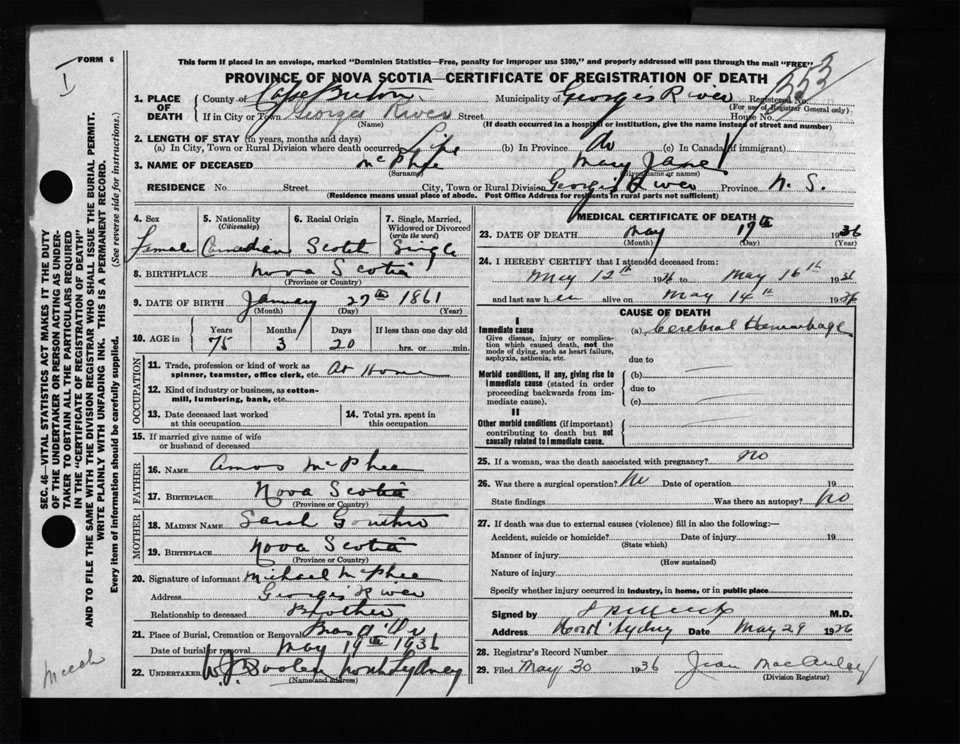 FORM 6
This form if placed in an envelope, marked "Dominion Statistics—Free, penalty for improper use $300," and properly addressed will pass through the mail "FREE"
PROVINCE OF NOVA SCOTIA—CERTIFICATE OF REGISTRATION OF DEATH
553
I
SEC. 46—VITAL STATISTICS ACT MAKES IT THE DUTY
OF THE UNDERTAKER OR PERSON ACTING AS UNDER-
TAKER TO OBTAIN ALL THE PARTICULARS REQUIRED
IN THE "CERTIFICATE OF REGISTRATION OF DEATH"
AND TO FILE THE SAME WITH THE DIVISION REGISTRAR WHO SHALL ISSUE THE BURIAL PERMIT.
WRITE PLAINLY WITH UNFADING INK. THIS IS A PERMANENT RECORD.
Every item of information should be carefully supplied. (See reverse side for instructions.)
1. PLACE OF DEATH
County of Cape Breton Municipality of Georges River Registered No.
(For use of Registrar General only)
If in City or Town Georges River Street House No.
(Name) (If death occurred in a hospital or institution, give the name instead of street and number)
2. LENGTH OF STAY (in years, months and days)
(a) In City, Town or Rural Division where death occurred Life (b) In Province do (c) In Canada (if immigrant)
3. NAME OF DECEASED McPhee Mary Jane
(Surname) (Given name or names)
RESIDENCE No Street City, Town or Rural Division Georges River Province N. S.
(Residence means usual place of abode. Post Office Address for residents in rural parts not sufficient)
4. Sex Female
5. Nationality (Citizenship) Canadian
6. Racial Origin Scotch
7. Single, Married, Widowed or Divorced (write the word) Single
8. BIRTHPLACE Nova Scotia
(Province or Country)
9. DATE OF BIRTH January 27th 1861
(Month) (Day) (Year)
10. AGE in Years 75 Months 3 Days 20 If less than one day old hrs. or min.
OCCUPATION
11. Trade, profession or kind of work as spinner, teamster, office clerk, etc. At Home
12. Kind of industry or business, as cotton-mill, lumbering, bank, etc.
13. Date deceased last worked at this occupation
14. Total yrs. spent in this occupation
15. If married give name of wife or husband of deceased
FATHER
16. NAME Amos McPhee
17. BIRTHPLACE Nova Scotia
(Province or Country)
MOTHER
18. MAIDEN NAME Sarah
19. BIRTHPLACE Nova Scotia
(Province or Country)
20. Signature of informant Michael McPhee
Address Georges River
Relationship to deceased Brother
21. Place of Burial, Cremation or Removal Bras d'Or
Date of burial or removal May 19th 1936
22. UNDERTAKER W.J. Dooley North Sydney
(Name and address)
Meech
MEDICAL CERTIFICATE OF DEATH
23. DATE OF DEATH May 17th 1936
(Month) (Day) (Year)
24. I HEREBY CERTIFY that I attended deceased from:
May 12th 1936 to May 16th 1936
and last saw her alive on May 14th 1936
CAUSE OF DEATH
I
Immediate cause
Give disease, injury or complication which caused death, not the mode of dying, such as heart failure, asphyxia, asthenia, etc.
(a) Cerebral Hemorrhage
due to
Morbid conditions, if any, giving rise to immediate cause (stated in order proceeding backwards from immediate cause).
(b)
due to
(c)
II
Other morbid conditions (if important) contributing to death but not causally related to immediate cause.
25. If a woman, was the death associated with pregnancy? no
26. Was there a surgical operation? No Date of operation 19
State findings Was there an autopsy? No
27. If death was due to external causes (violence) fill in also the following:—
Accident, suicide or homicide? Date of injury 19
(State which)
Manner of injury
(How sustained)
Nature of injury
Specify whether injury occurred in industry, in home, or in public place
Signed by M.D.
Address North Sydney Date May 29 1936
28. Registrar's Record Number
29. Filed May 30 1936 Jean MacAulay
(Division Registrar)